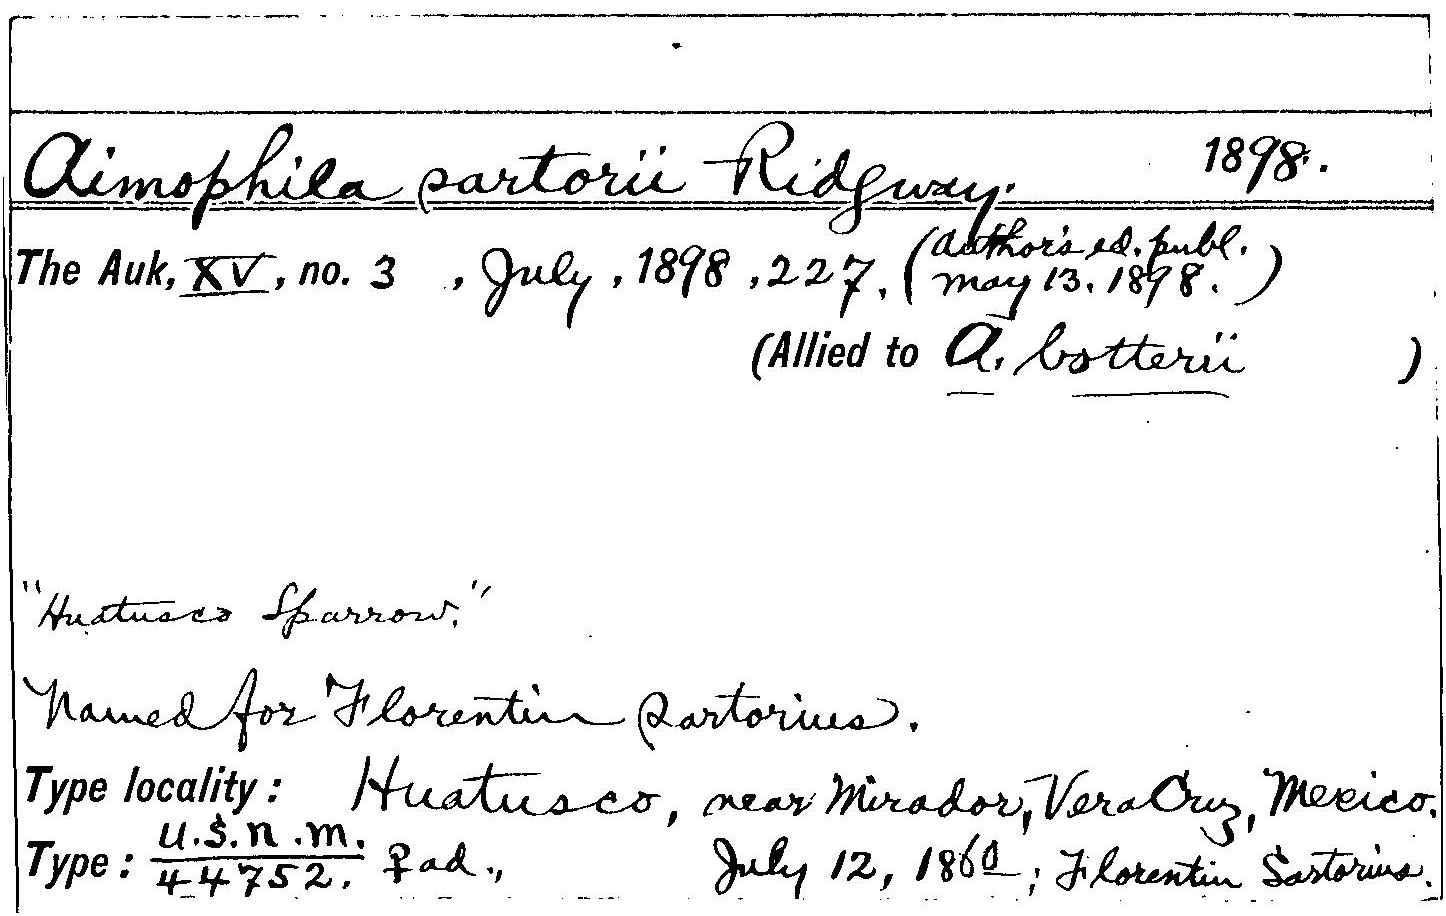 Aimophila sartorii Ridgway. 1898.
The Auk, XV, no. 3, July, 1898, 227. (author's ed. publ.
May 13. 1898.)
(Allied to A. botterii )
"Huatusco Sparrow."
Named for Florentin Sartorius.
Type locality: Huatusco, near Mirador, Vera Cruz, Mexico.
Type: U.S.N.M. 44752. ♀ ad., July 12, 1860; Florentin Sartorius.